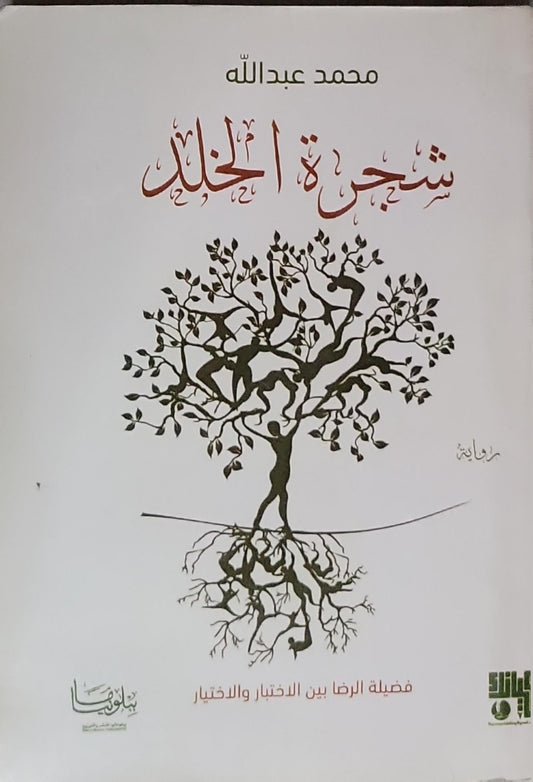 محمد عبدالله
شجرة الخلد
رواية
فضيلة الرضا بين الاختبار والاختيار
ببلومانيا